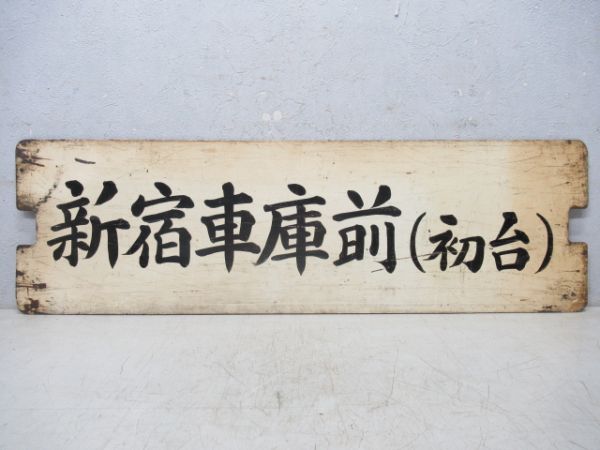 新宿車庫前(初台)